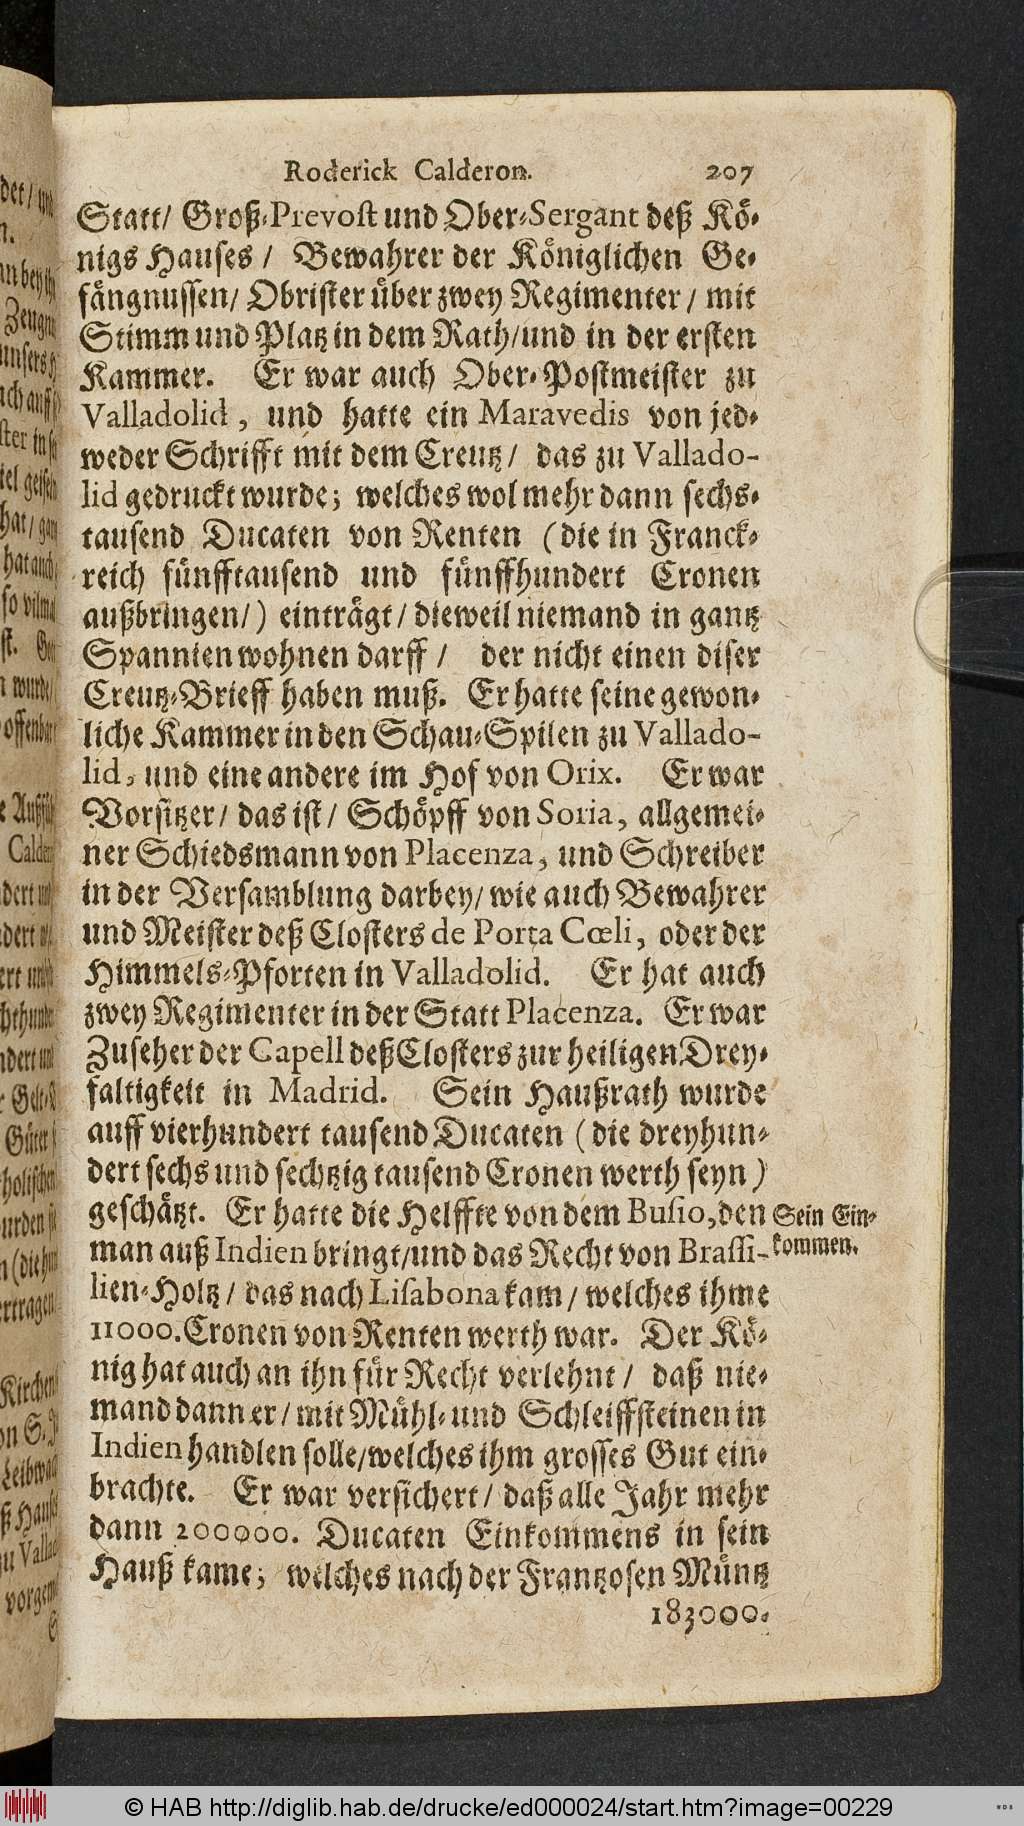 Roderick Calderon. 207
Statt/ Groß-Prevost und Ober-Sergant deß Kö-
nigs Hauses / Bewahrer der Königlichen Ge-
fängnussen/ Obrister über zwey Regimenter / mit
Stimm und Platz in dem Rath/und in der ersten
Kammer. Er war auch Ober-Postmeister zu
Valladolid, und hatte ein Maravedis von jed-
weder Schrifft mit dem Creutz / das zu Vallado-
lid gedruckt wurde; welches wol mehr dann sechs-
tausend Ducaten von Renten (die in Franck-
reich fünfftausend und fünffhundert Cronen
außbringen/) einträgt / dieweil niemand in gantz
Spannien wohnen darff / der nicht einen diser
Creutz-Brieff haben muß. Er hatte seine gewon-
liche Kammer in den Schau-Spilen zu Vallado-
lid, und eine andere im Hof von Orix. Er war
Vorsitzer/ das ist/ Schöpff von Soria, allgemei-
ner Schiedsmann von Placenza, und Schreiber
in der Versamblung darbey/ wie auch Bewahrer
und Meister deß Closters de Porta Cœli, oder der
Himmels-Pforten in Valladolid. Er hat auch
zwey Regimenter in der Statt Placenza. Er war
Zuseher der Capell deß Closters zur heiligen Drey-
faltigkeit in Madrid. Sein Haußrath wurde
auff vierhundert tausend Ducaten (die dreyhun-
dert sechs und sechtzig tausend Cronen werth seyn)
geschätzt. Er hatte die Helffte von dem Busio, den
man auß Indien bringt/und das Recht von Brassi-
lien-Holtz / das nach Lisabona kam / welches ihme
11000. Cronen von Renten werth war. Der Kö-
nig hat auch an ihn für Recht verlehnt / daß nie-
mand dann er / mit Mühl- und Schleiffsteinen in
Indien handlen solle/welches ihm grosses Gut ein-
brachte. Er war versichert / daß alle Jahr mehr
dann 200000. Ducaten Einkommens in sein
Hauß kame; welches nach der Frantzosen Müntz
183000.
Sein Ein-
kommen.
© HAB http://diglib.hab.de/drucke/ed000024/start.htm?image=00229